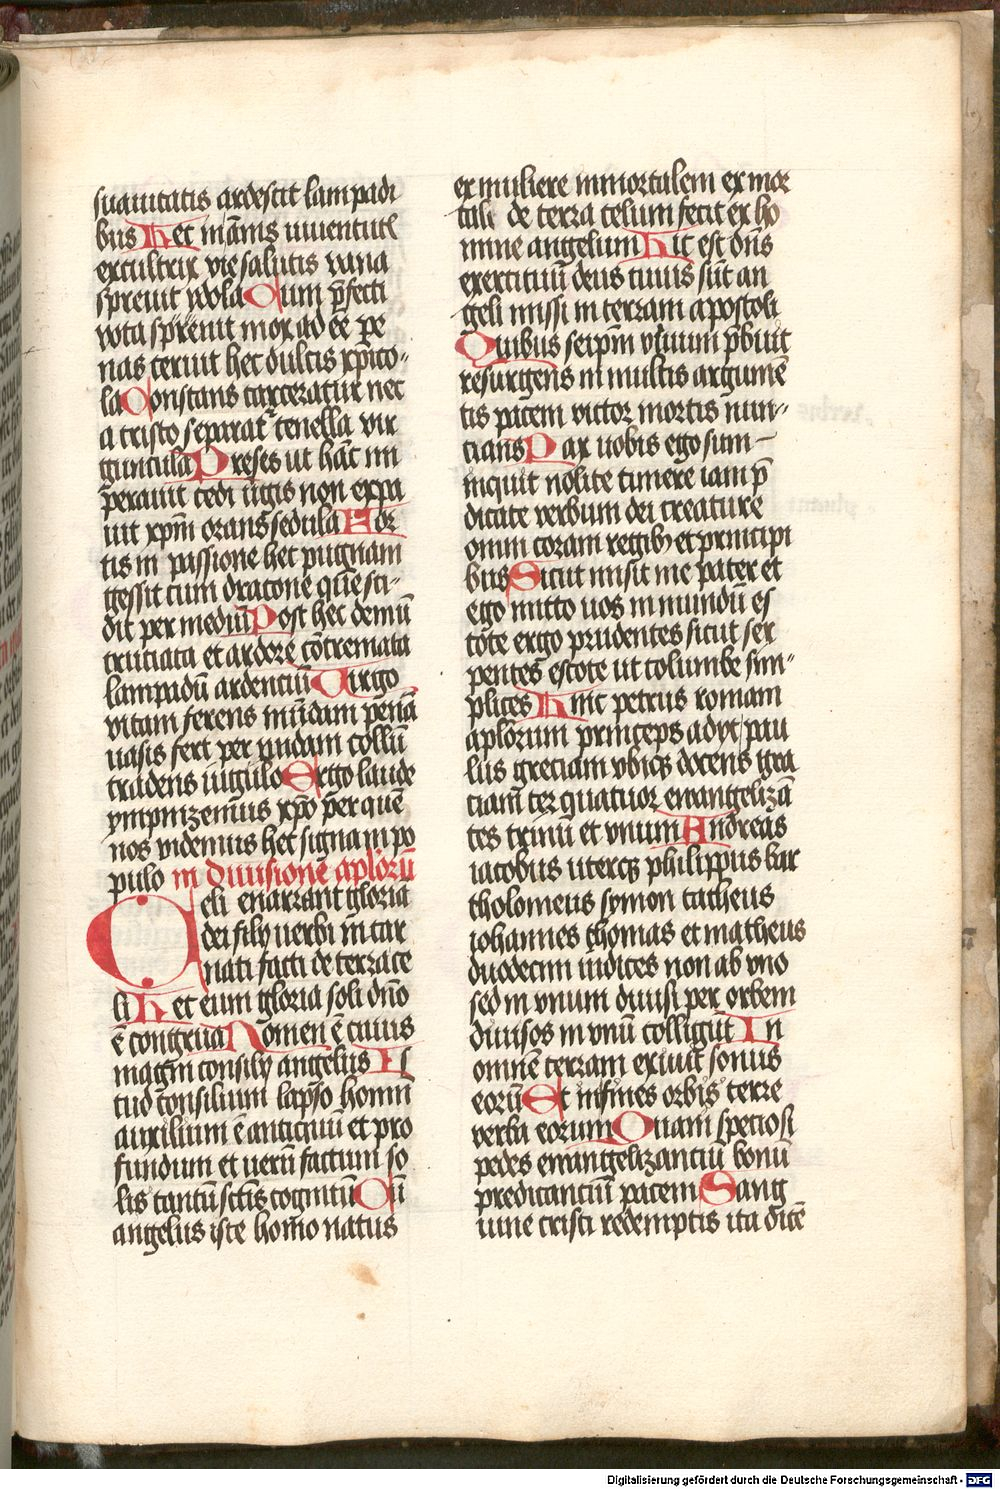 suauitatis ardescit lampadi
bus Het inañis iuuentutẽ
excultrix vie salutis vana
spreuit ydola Cum p̃fecti
vota spreuit mox ad eẽ pe
nas teruit hec dulcis xp̃ico-
la Constans carceratur nec
a cristo separat̃ tenella vir
guncula Preses ut hãc im
perauit cedi uĩgis non expa
uit xpm̃ orans sedula For
tis in passione hec pugnam
gessit cum dracone quẽ sci-
dit per mediũ Post hec demũ
cruciata et ardore cõcremata
lampadũ ardentiũ Virgo
vitam ferens mũdam penã
uasis fert per undam collũ
tradens iugulo Ergo laude
ympnizemus xp̃o per quẽ
nos videmus hec signa in po
pulo in diuisione aplõrũ
Celi enarrant gloriã
dei filij uerbi in car
nati facti de terra ce
li Het eum gloria soli dñо
ẽ congrua Nomen ẽ cuius
magni consilij angelus Is
tud consilium lapso homi
auxilium ẽ antiquũ et pro
fundum et uerũ factum so
lis tantũ sctĩs cognitũ Cũ
angelus iste homo natus
ex muliere inmortalem ex mor
tali de terra celum fecit ex ho
mine angelum Hic est dñs
exercituũ deus cuius sũt an
geli missi in terram apostoli
Quibus seipm̃ viuum p̃buit
resurgens in multis argumẽ
tis pacem victor mortis nun-
cians Pax uobis ego sum
inquit nolite timere iam p̃
dicate verbum dei creature
omni coram regibꝫ et principi
bus Sicut misit me pater et
ego mitto uos in mundũ es
tote ergo prudentes sicut ser
pentes estote ut columbe sim-
plices Hinc petrus romam
aplõrum princeps adyt pau
lus greciam vbiqꝫ docens gra
ciam ter quatuor ewangelizã
tes trinũ et vnum Andreas
iacobus uterqꝫ philippus bar
tholomeus symon tatheus
iohannes thomas et matheus
duodecim iudices non ab vno
sed in vnum diuisi per orbem
diuisos in vnũ colligũt In
omnẽ terram exiuit sonus
eorũ Et in fines orbis terre
verba eorum Quam speciosi
pedes ewangelizanciũ bonũ
predicanciũ pacem Sang
wine cristi redemptis ita dicẽ
Digitalisierung gefördert durch die Deutsche Forschungsgemeinschaft - DFG